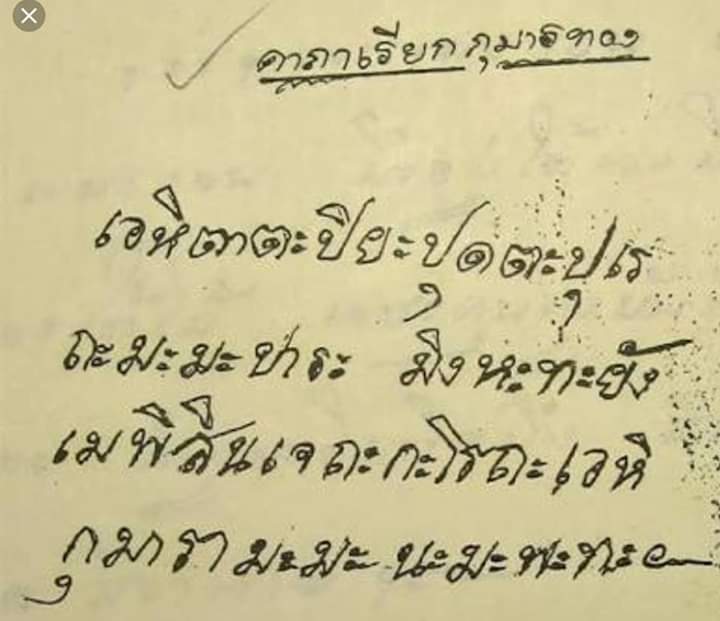 คาถาเรียกกุมารทอง
เอหิตาตะปิยะปุตตะปุเร
ถะมะมะปาระ มิงหะทะยัง
เมพิสินเจถะกะโรถะเอหิ
กุมารามะมะ นะมะพะทะ